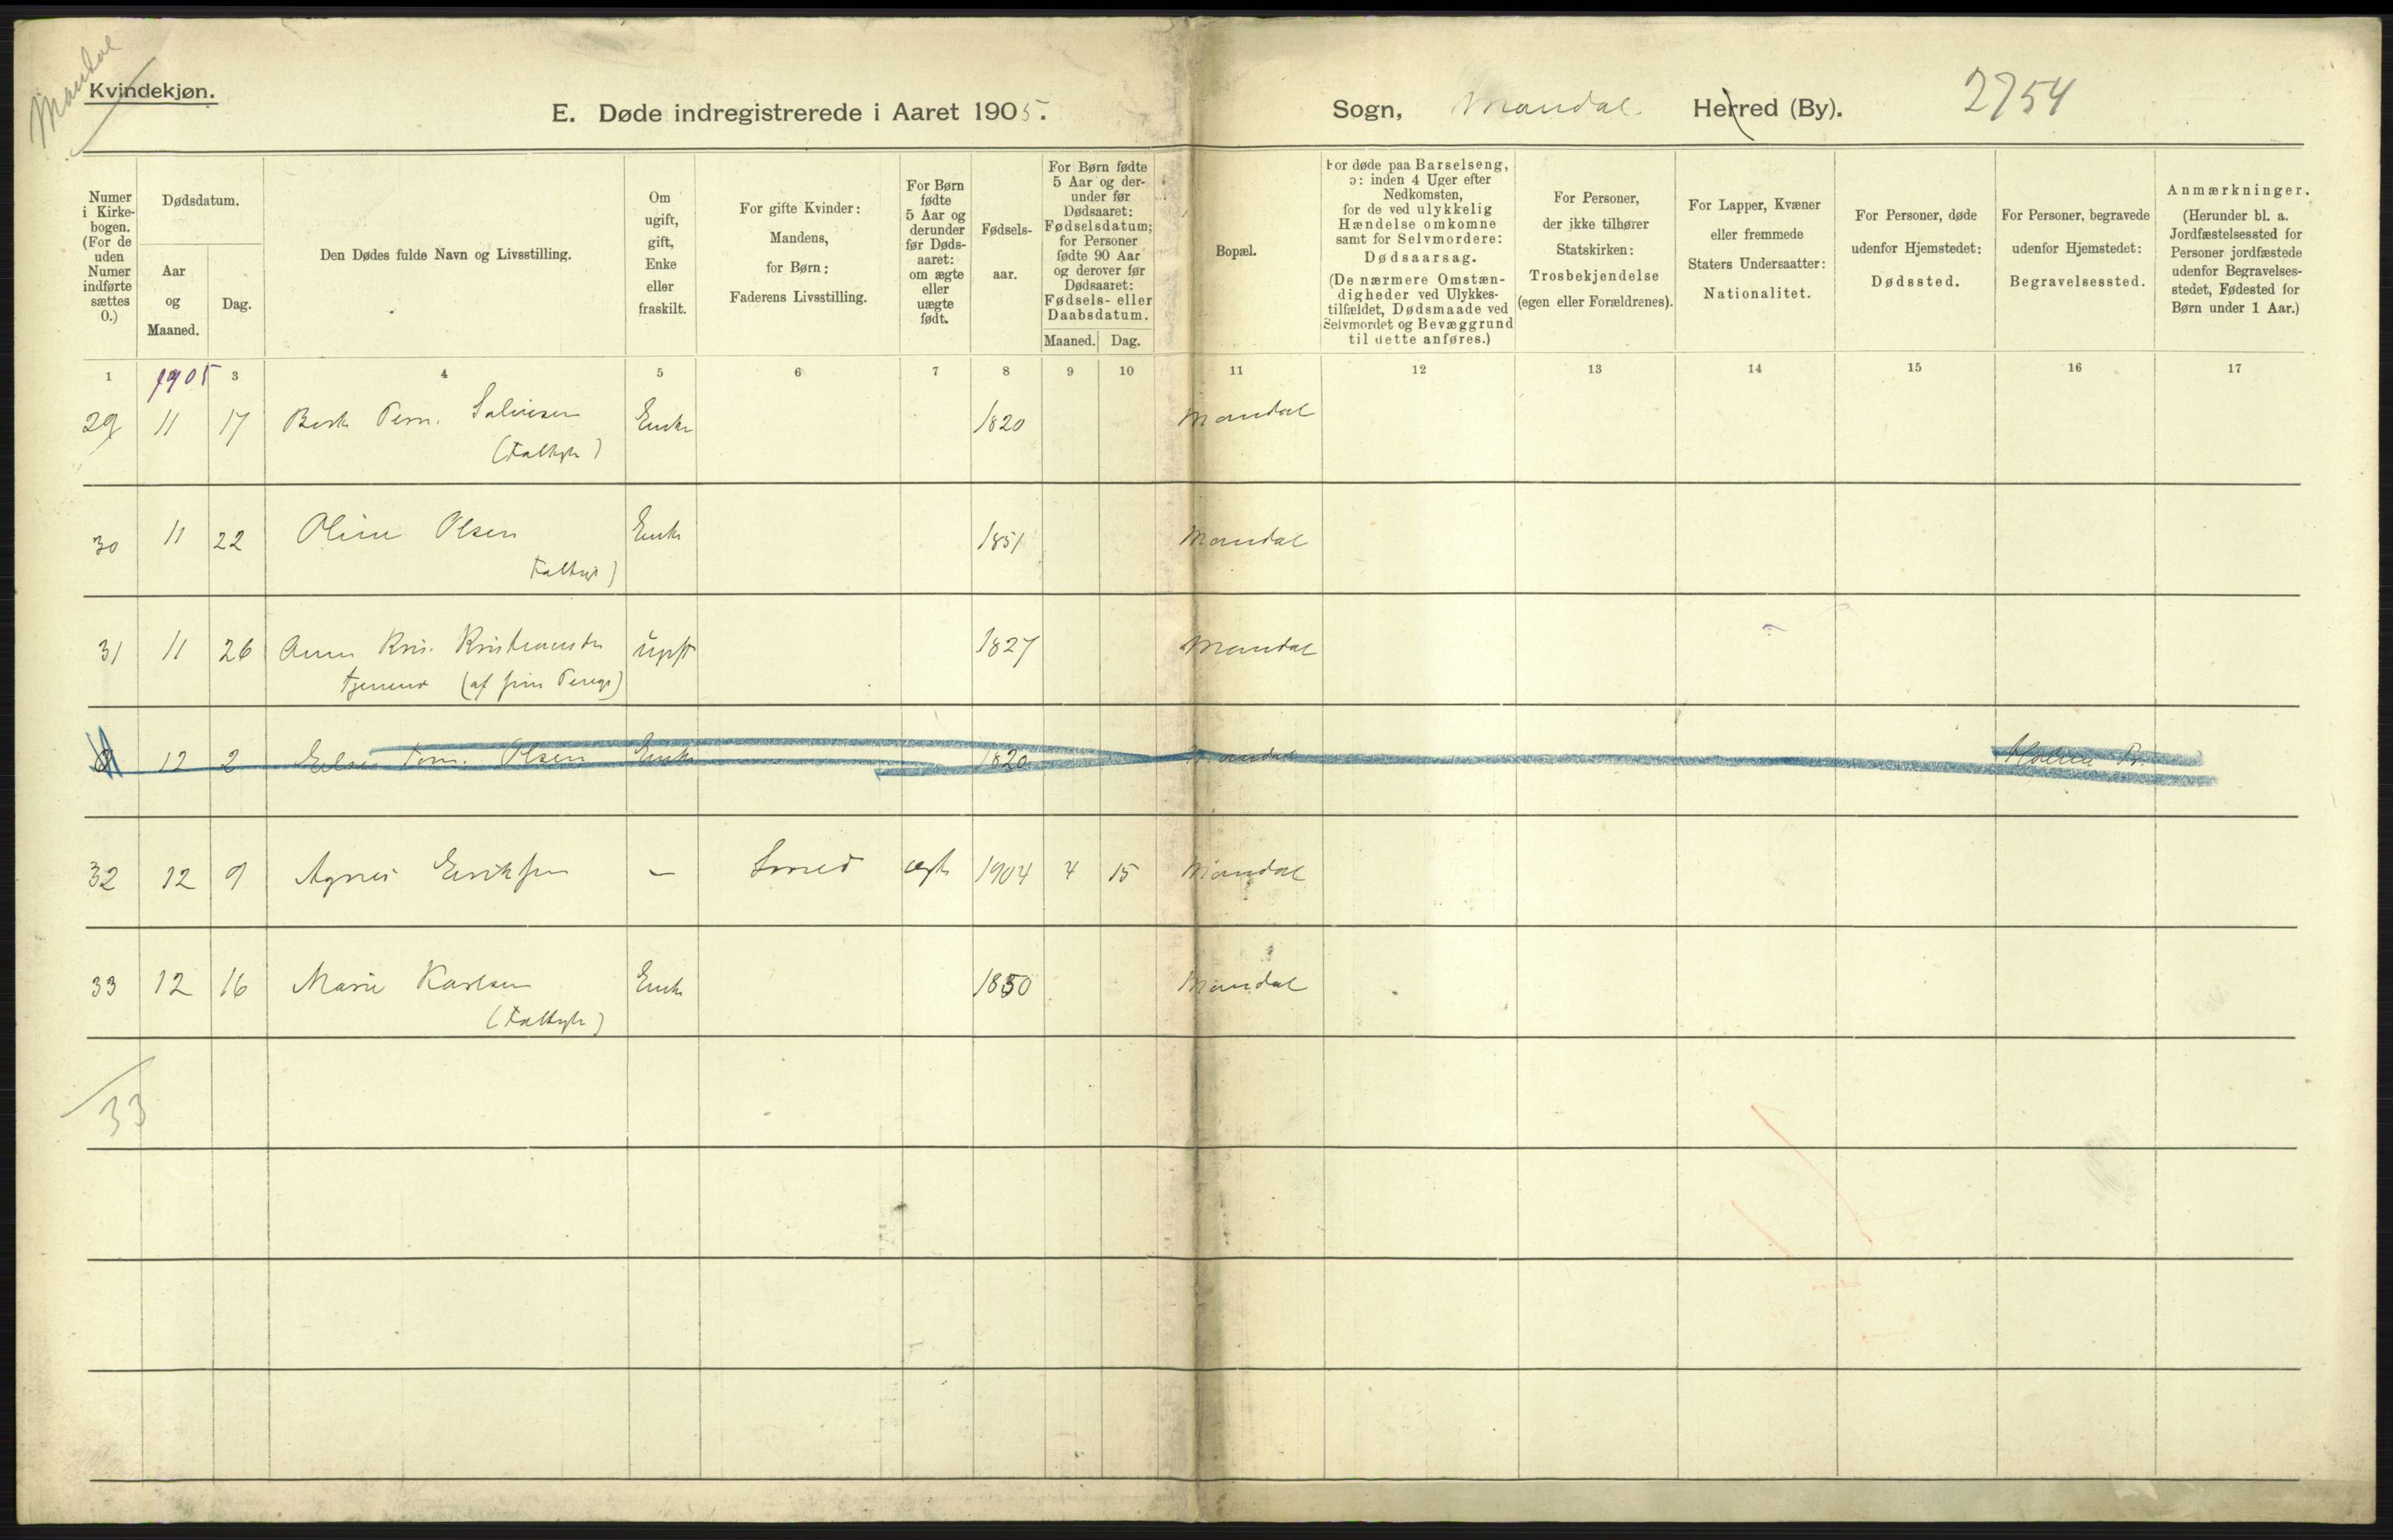 Mandal
Kvindekjøn.
E. Døde indregistrerede i Aaret 1905.
Sogn, Mandal. Herred (By). 2754
Numer i Kirke-bogen. (For de uden Numer indførte sættes 0.)
Dødsdatum.
Aar og Maaned.
Dag.
Den Dødes fulde Navn og Livsstilling.
Om ugift, gift, Enke eller fraskilt.
For gifte Kvinder: Mandens, for Børn: Faderens Livsstilling.
For Børn fødte 5 Aar og derunder før Døds-aaret: om ægte eller uægte født.
Fødsels-aar.
For Børn fødte 5 Aar og der-under før Dødsaaret: Fødselsdatum; for Personer fødte 90 Aar og derover før Dødsaaret: Fødsels- eller Daabsdatum.
Maaned. Dag.
Bopæl.
For døde paa Barselseng, ɔ: inden 4 Uger efter Nedkomsten, for de ved ulykkelig Hændelse omkomne samt for Selvmordere: Dødsaarsag.
(De nærmere Omstæn-digheder ved Ulykkes-tilfældet, Dødsmaade ved Selvmordet og Bevæggrund til dette anføres.)
For Personer, der ikke tilhører Statskirken: Trosbekjendelse (egen eller Forældrenes).
For Lapper, Kvæner eller fremmede Staters Undersaatter: Nationalitet.
For Personer, døde udenfor Hjemstedet: Dødssted.
For Personer, begravede udenfor Hjemstedet: Begravelsessted.
Anmærkninger. (Herunder bl. a. Jordfæstelsessted for Personer jordfæstede udenfor Begravelses-stedet, Fødested for Børn under 1 Aar.)
1 1905 3 4 5 6 7 8 9 10 11 12 13 14 15 16 17
29 11 17 Salvesen Enke 1820 Mandal
30 11 22 Oline Olsen Enke 1851 Mandal
31 11 26 Anne 1827 Mandal
12 2 Olsen Enke 1820 Mandal
32 12 9 Agnes Eriksen — Smed ægte 1904 4 15 Mandal
33 12 16 Marie Karlsen Enke 1850 Mandal
33